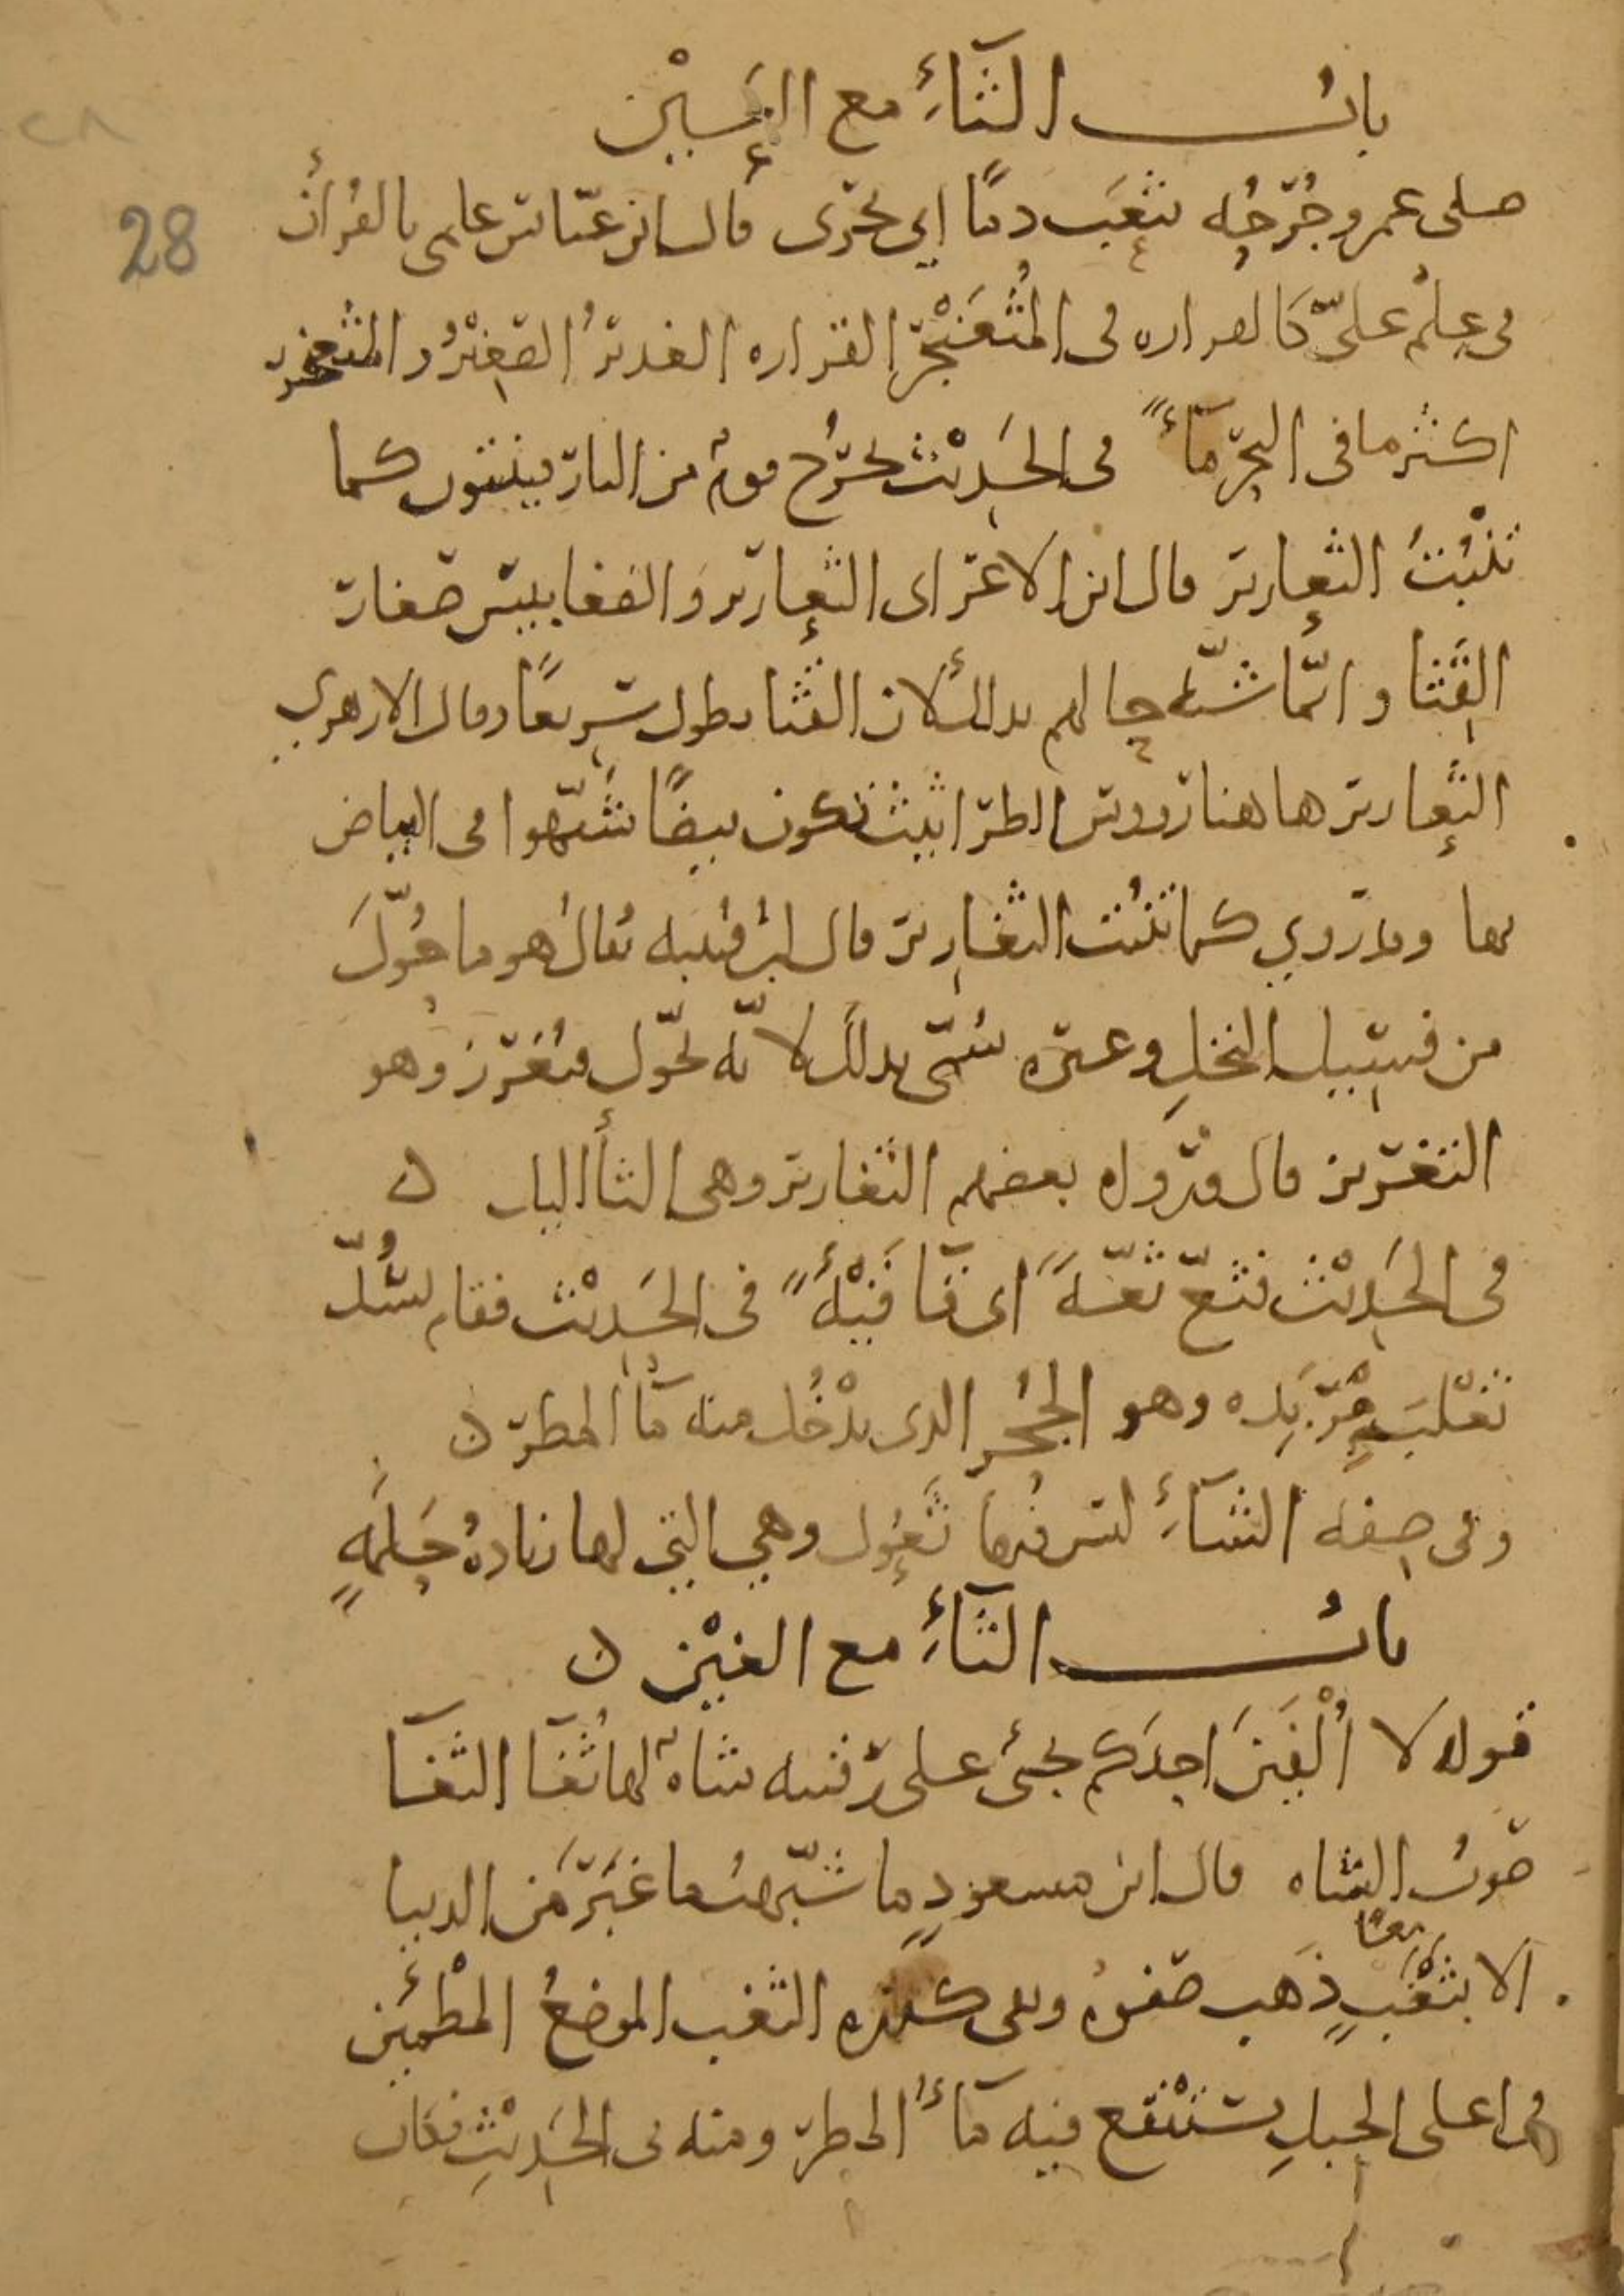 باب الثاء مع العين
صلى عمر وجرحه يثعب دما اي يجري قال ابن عباس علمي بالقرآن
في علم علي كالقرارة في المثعنجر القرارة الغدير الصغير والمثعنجر
اكثر ما في البحر ماء في الحديث يخرج قوم من النار فينبتون كما
تنبت الثعارير قال ابن الاعرابي الثعارير والضغابيس صغار
القثا وانما شبه حالهم بذلك لان القثا يطول سريعا وقال الازهري
الثعارير هاهنا رووس الطراثيث تكون بيضا شبهوا في البياض
بها وقد روي كما تنبت الثغارير قال ابن قتيبه يقال هو ما حول
من فسيل النخل وغيره سمي بذلك لانه يحول فيغرز وهو
التغريز قال ورواه بعضهم الثغارير وهي الثآليل ن
في الحديث فثع ثعة اي قا قيئة في الحديث فقام يسد
ثعلب مربده وهو الجحر الذي يدخل منه ما المطر ن
وفي صفة الشاء ليس فيها ثعول وهي التي لها زيادة حلمة
باب الثاء مع الغين ن
قوله لا الفين احدكم يجئ على رقبته شاة لها ثغا الثغا
صوت الشاه قال ابن مسعود ما شبهت ما غبر من الدنيا
الا بثغب ذهب صفوه وبقى كدره الثغب الموضع المطمئن
في اعلى الجبل يستنقع فيه ماء المطر ومنه في الحديث
28
٢٨